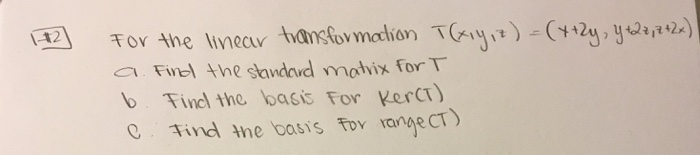 1-#2] For the linear transformation T(x,y,z) = (x+2y, y+2z, z+2x)
a. Find the standard matrix for T
b. Find the basis for Ker(T)
c. Find the basis for range(T)